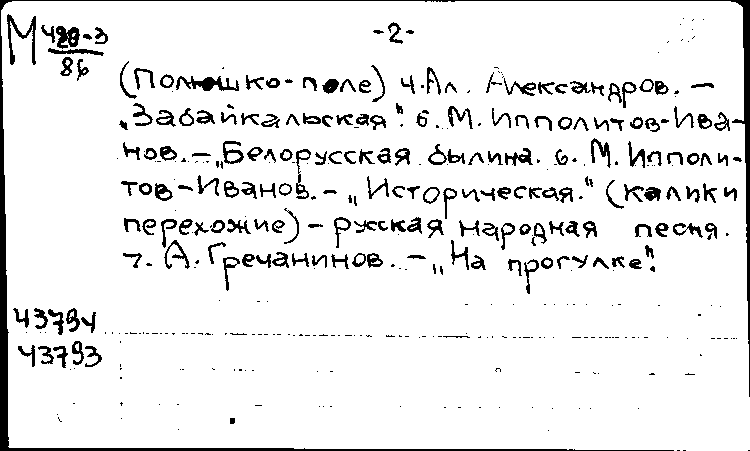 -2-
М 420-3
86
(Полюшко-поле) 4. Ал. Александров. -
„Забайкальская". 6. М. Ипполитов-Ива-
нов. - „Белорусская былина. 6. М. Ипполи-
тов-Иванов. - „Историческая." (Калики
перехожие) - русская народная песня.
7. А. Гречанинов. - „На прогулке".
43794
43793